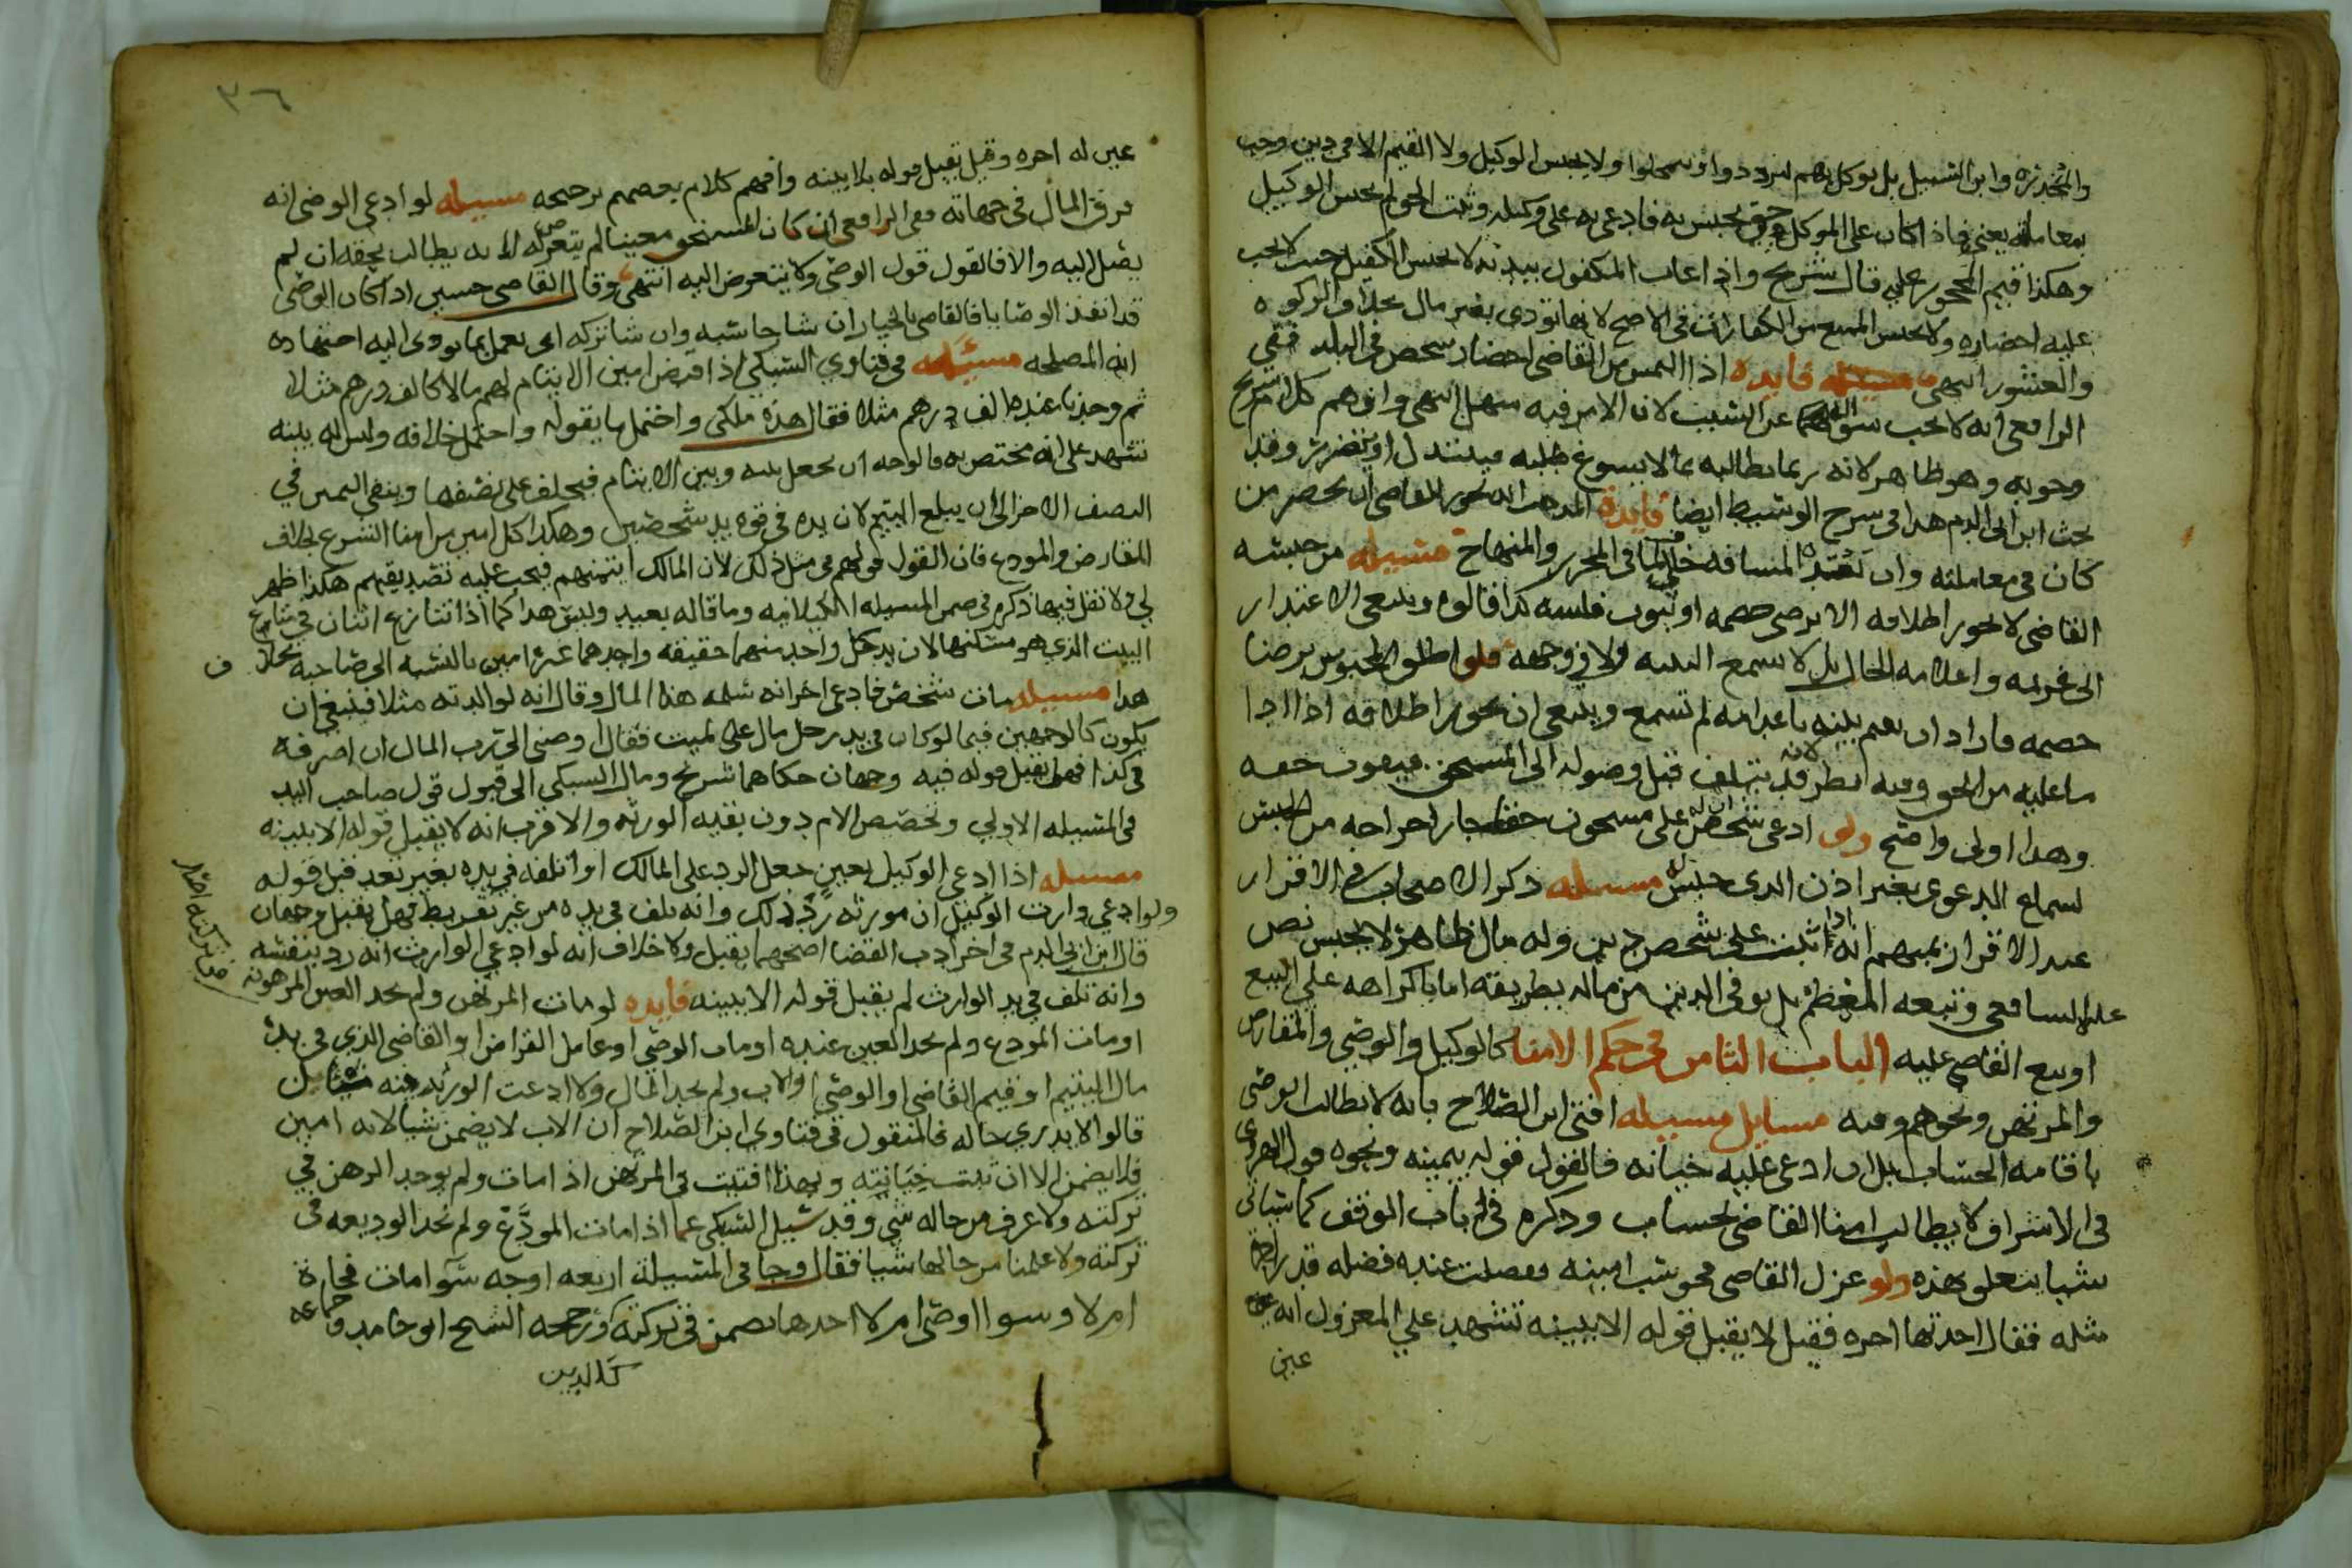 والمخدرة وابن السبيل بل يوكل بهم ليترددوا او يتمحلوا ولا يحبس الوكيل ولا القيم الا في دين وجب
بمعاملته يعني فاذا كان على الموكل حق يحبس به فادعى به على وكيله وثبت الحق لم يحبس الوكيل
وهكذا قيم المحجور عليه قال شريح واذا غاب المكفول ببدنه لا يحبس الكفيل حيث لا يجب
عليه احضاره ولا يحبس الممتنع من الكفارات في الاصح لانها تودى بغير مال بخلاف الزكوه
والعشور انتهى فايده اذا التمس من القاضي احضار شخص في البلد ففي
الرافعي انه لا يجب سواله عن السبب لان الامر فيه سهل انتهى وافهم كلام شريح
وجوبه وهو ظاهر لانه ربما يطالبه بما لا يسوغ طلبه فيتبذل او يتضرر وقد
بحث ابن ابي الدم هذا في شرح الوسيط ايضا فايدة المذهب انه يجوز للقاضي ان يحضر من
كان في معاملته وان بعدت المسافه خلافا لما في المحرر والمنهاج مسيله من حبسه
القاضي لا يجوز اطلاقه الا برضى خصمه او ثبوت فلسه كذا قالوه وينبغي الاعتذار
الى غريمه واعلامه الحال بل لا يسمع البينه ولا في وجهه فلو اطلق المحبوس برضا
خصمه فاراد ان يقيم بينه باعدامه لم تسمع وينبغي ان يجوز اطلاقه اذا ادا
ما عليه من الحق وفيه نظر لانه قد يتلف قبل وصوله الى المستحق فيفوت حقه
وهذا اولى واضح ولو ادعى شخص ان له على مسجون حقا جاز اخراجه من الحبس
لسماع الدعوى بغير اذن الذى حبس له مسيله ذكر الاصحاب في الاقرار
عند الاقرار بمبهم انه اذا ثبت على شخص دين وله مال ظاهر لا يحبس نص
عليه الشافعي وتبعه المعظم بل يوفى الدين من ماله بطريقه اما باكراهه على البيع
او بيع القاضي عليه الباب الثامن في حكم الامنا كالوكيل والوصي والمقارض
والمرتهن ونحوهم وفيه مسايل مسيله افتى ابن الصلاح بانه لا يطالب الوصي
باقامه الحساب بل ان ادعى عليه خيانه فالقول قوله بيمينه ونحوه قول الهروي
في الاشراف لا يطالب امنا القاضي بحساب وذكره في باب الوقف كما سياتي
شيا يتعلق بهذه ولو عزل القاضي فحوسب امينه ففضلت عنده فضله قدر اجرة
مثله فقال اخذتها اجره فقيل لا يقبل قوله الا ببينه تشهد على المعزول انه
عين
٣٦
عين له اجره وقيل يقبل قوله بلا بينه وافهم كلام بعضهم ترجيحه مسيله لو ادعى الوصي انه
فرق المال في جهاته ففي الرافعي ان كان المستحق معينا لم يتعرض له لانه يطالب بحقه ان لم
يصل اليه والا فالقول قول الوصي ولا يتعرض اليه انتهى وقال القاضي حسين اذا كان الوصي
قد انفذ الوصايا فالقاضي بالخيار ان شا حاسبه وان شا تركه اى يعمل بما يودى اليه اجتهاده
انه المصلحه مسيله في فتاوي السبكي اذا اقرض امين الايتام لهم مالا كالف درهم مثلا
ثم وجدنا عنده الف درهم مثلا فقال هذه ملكي واحتمل ما يقوله واحتمل خلافه وليس له بينه
تشهد على انه مختص به فالوجه ان يجعل بينه وبين الايتام فيحلف على نصفها ويبقى اليمين في
النصف الاخر الى ان يبلغ اليتيم لان يده في قوه يد شخصين وهكذا كل امين من امنا الشرع بخلاف
المقارض والمودع فان القول قولهم في مثل ذلك لان المالك ايتمنهم فيجب عليه تصديقهم هكذا ظهر
لي ولا نقل فيها ذكره في ضمن المسيله الكيلانيه وما قاله بعيد وليس هذا كما اذا تنازع اثنان في متاع
البيت الذي هو مسكنهما لان يد كل واحد منهما حقيقه واحدهما غير امين بالنسبه الى صاحبه بخلاف
هذا مسيله مات شخص فادعى اخر انه سلمه هذا المال وقال انه لوالدته مثلا فينبغي ان
يكون كالوجهين فيما لو كان في يد رجل مال على لميت فقال اوصى الى رب المال ان اصرفه
في كذا فهل يقبل قوله فيه وجهان حكاهما شريح ومال السبكي الى قبول قول صاحب اليد
في المسيله الاولي وتخصيص الام دون بقيه الورثه والاقرب انه لا يقبل قوله الا ببينه
مسيله اذا ادعى الوكيل بعين جعل الرد على المالك او اتلفه في يده بغير تعد قبل قوله
ولو ادعى وارث الوكيل ان مورثه رد ذلك وانه تلف في يده من غير تفريط فهل يقبل وجهان
قال ابن ابي الدم في اخر ادب القضا اصحهما يقبل ولا خلاف انه لو ادعى الوارث انه رد بنفسه
وانه تلف في يد الوارث لم يقبل قوله الا ببينه فايده لو مات المرتهن ولم نجد العين المرهونه
او مات المودع ولم نجد العين عنده او مات الوصي او عامل القراض او القاضي الذي في يده
مال اليتيم او قيم القاضي او الوصي او الاب ولم نجد المال ولا ادعت الورثه منه شيا بل
قالوا لا ندري حاله فالمنقول في فتاوي ابن الصلاح ان الاب لا يضمن شيا لانه امين
فلا يضمن الا ان ثبت خيانته وبهذا افتيت في المرتهن اذا مات ولم يوجد الرهن في
تركته ولا عرف من حاله شي وقد سيل السبكي عما اذا مات المودَع ولم نجد الوديعه في
تركته ولا علمنا من حالها شيا فقال وجا في المسيلة اربعه اوجه سوا مات فجاة
ام لا وسوا اوصى ام لا احدها يضمن في تركته ورجحه الشيخ ابو حامد وجماعه
كالدين